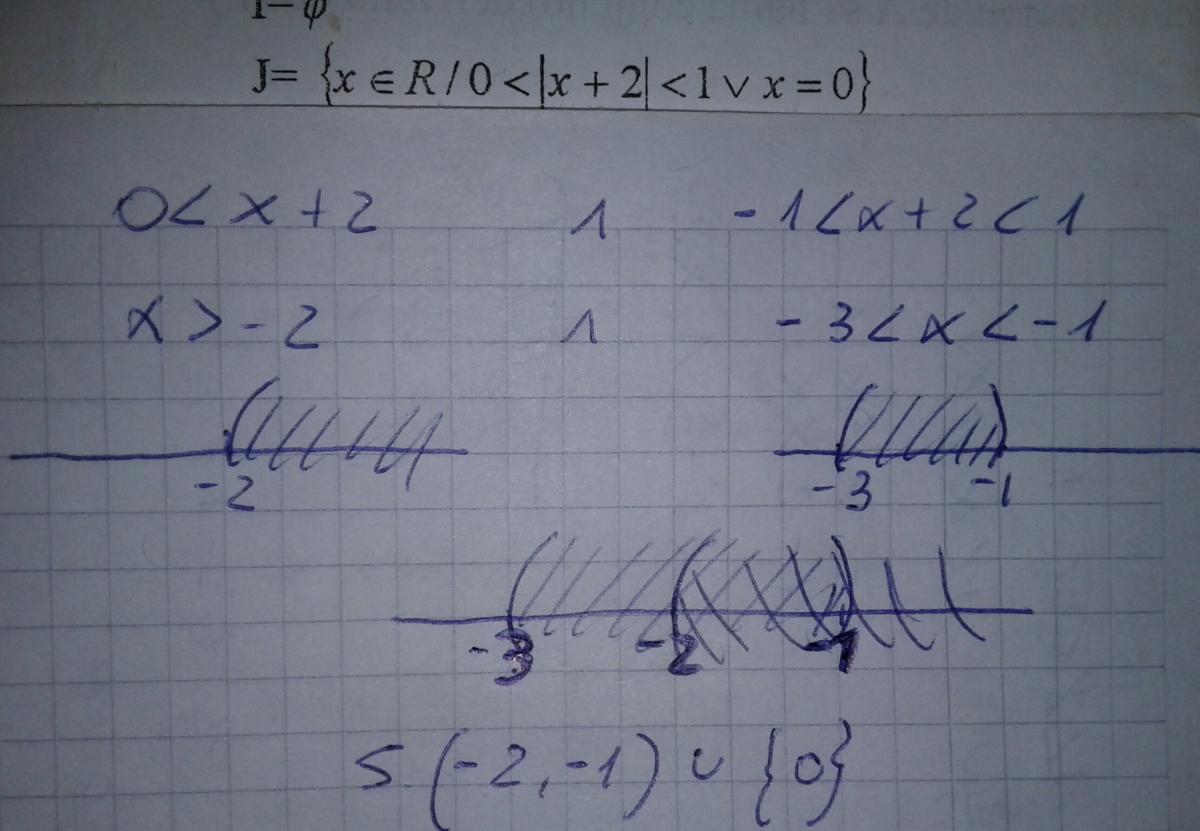 I= φ
J= {x ∈ R / 0 < |x + 2| < 1 ∨ x = 0}
0 < x + 2 ∧ -1 < x + 2 < 1
x > -2 ∧ -3 < x < -1
-2 -3 -1
-3 -2 -1
S (-2, -1) ∪ {0}